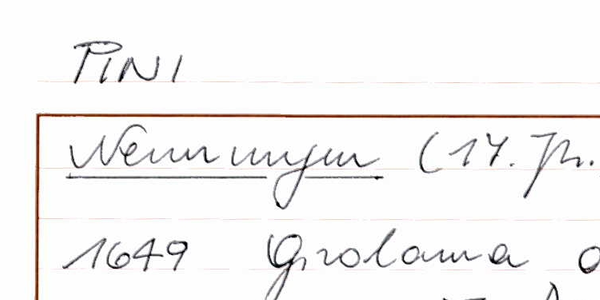 PINI
Nennungen (17. Jh.
1649 Girolama